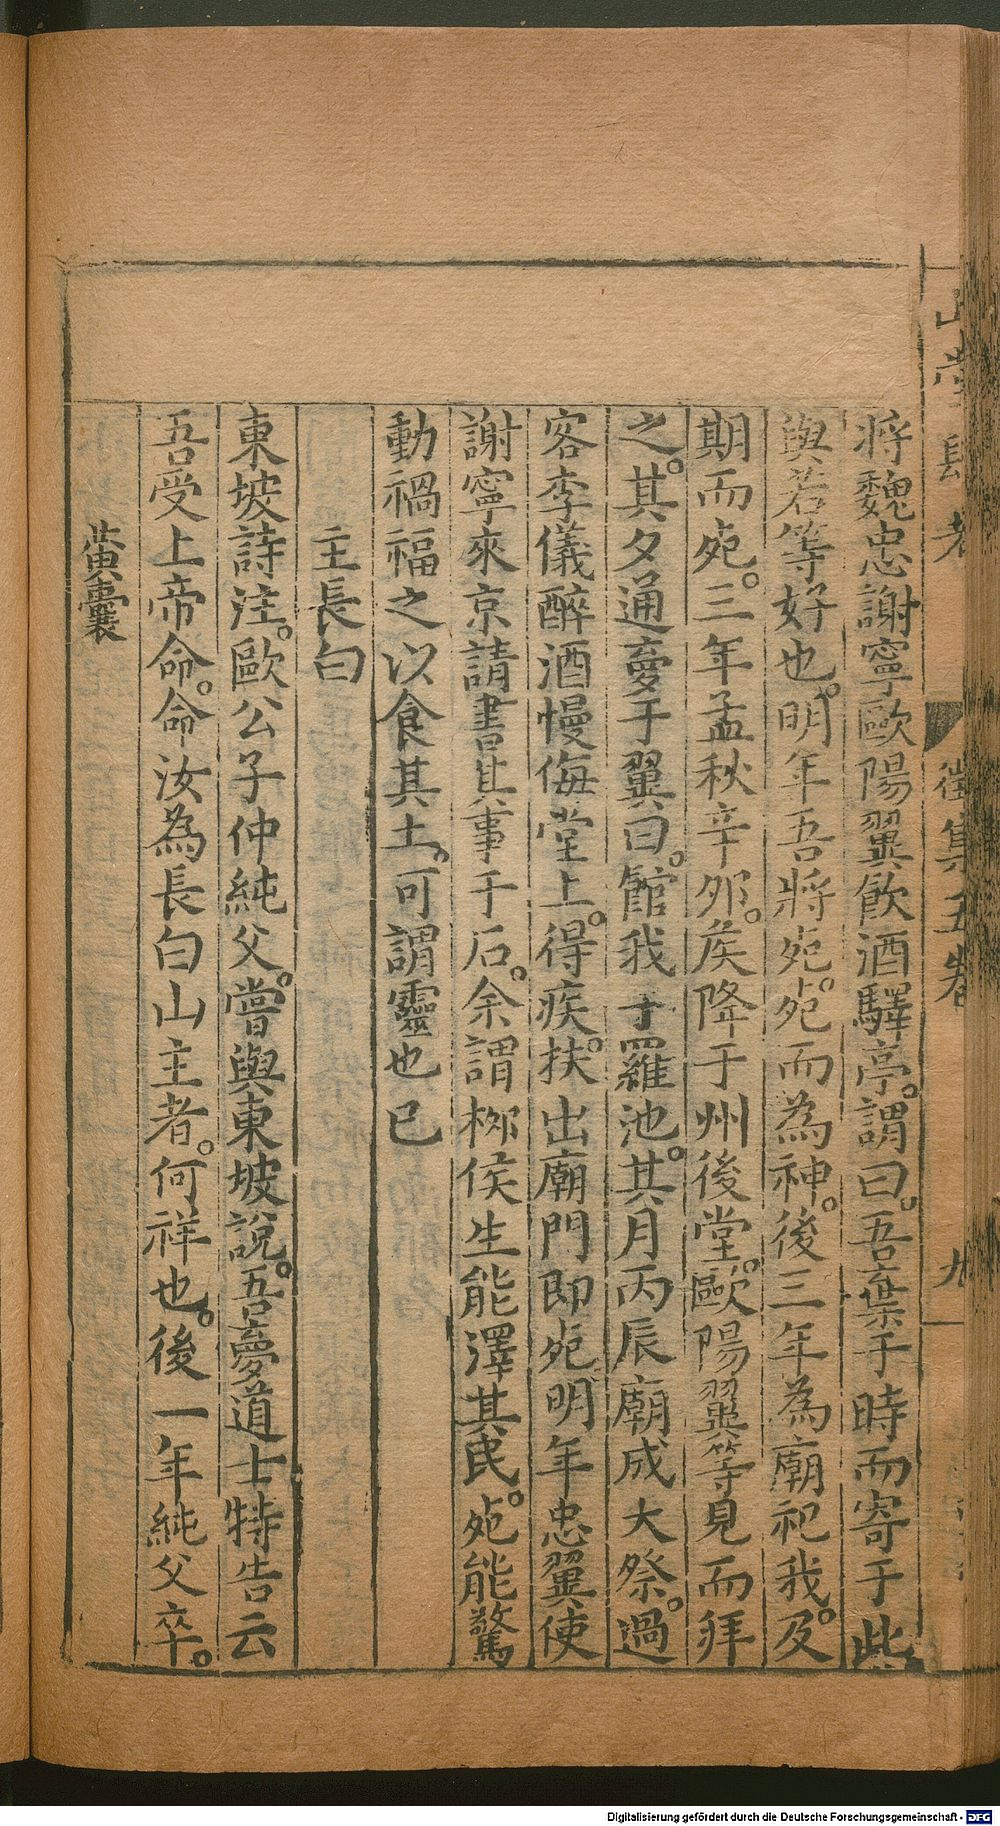 將魏忠謝寧歐陽翼飲酒驛亭。謂曰。吾棄于時而寄于此
與若等好也。明年吾將死。死而為神。後三年為廟祀我。及
期而死。三年孟秋辛卯。侯降于州後堂。歐陽翼等見而拜
之。其夕通夢于翼曰。館我于羅池。其月丙辰廟成大祭。過
客李儀醉酒慢侮堂上。得疾。扶出廟門即死明年忠翼使
謝寧來京請書其事于石。余謂柳侯生能澤其民。死能驚
動禍福之以食其土。可謂靈也已
主長白
東坡詩注。歐公子仲純父。嘗與東坡說。吾夢道士特告云
吾受上帝命。命汝為長白山主者。何祥也。後一年純父卒。
黃囊
集五卷
九
Digitalisierung gefördert durch die Deutsche Forschungsgemeinschaft - DFG